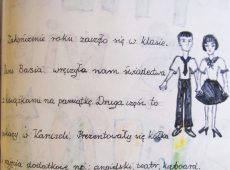 Zakończenie roku zaczęło się w klasie.
Pani Basia wręczyła nam świadectwa
i książkami na pamiątkę. Druga część to
w Kanzeoli. Prezentowały się kółka
zajęcia dodatkowe np: angielski, teatr, keyboard,